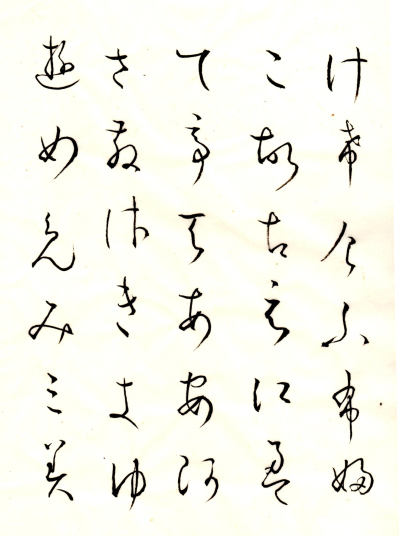 け希介ふ布婦
こ故古え江盈
て亭天あ安阿
さ散佐き支ゆ
遊め免み三美